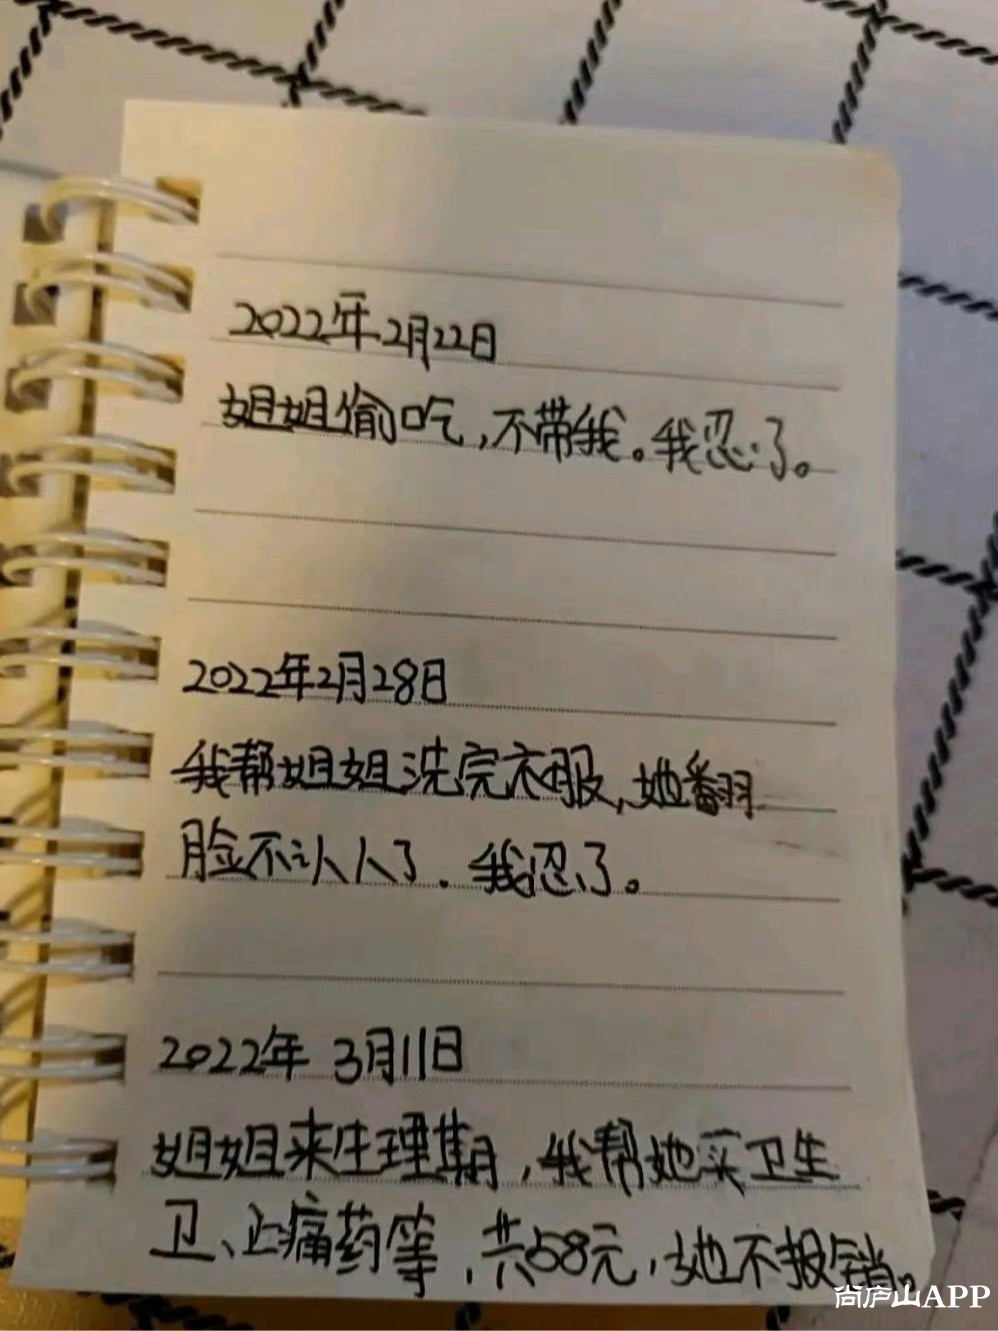 2022年2月22日
姐姐偷吃,不带我。我忍了。
2022年2月28日
我帮姐姐洗完衣服,她翻
脸不认人了.我忍了。
2022年 3月11日
姐姐来生理期,我帮她买卫生
卫、止痛药等,共58元,她不报销。
尚庐山APP